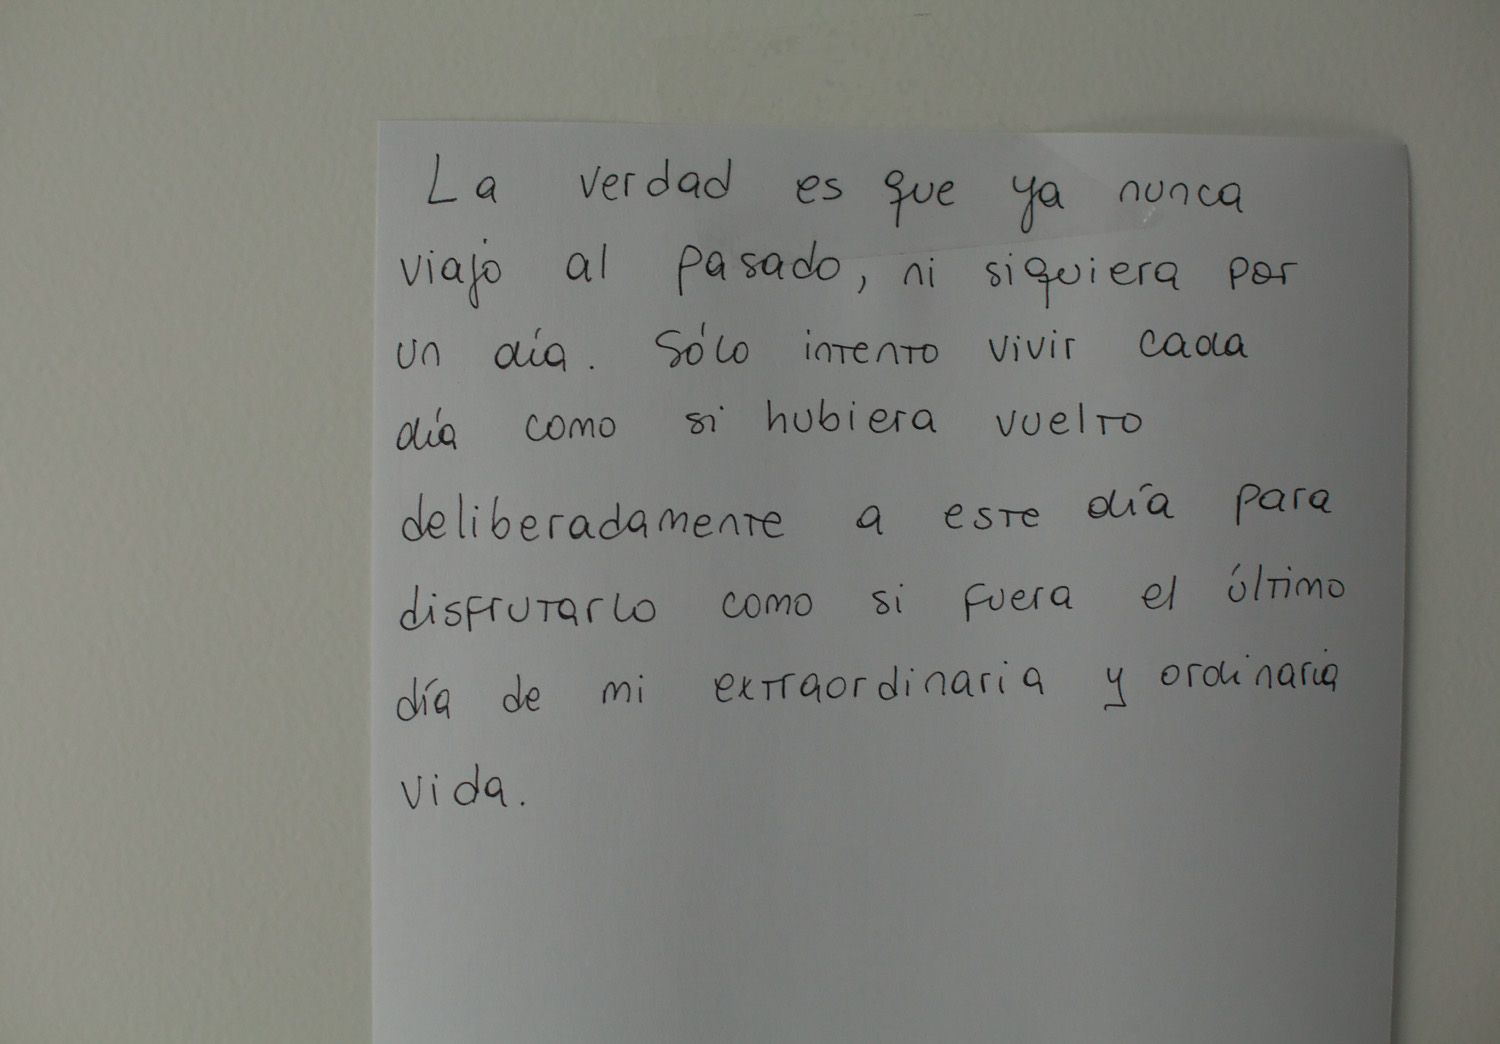 La verdad es que ya nunca
viajo al pasado, ni siquiera por
un día. Sólo intento vivir cada
día como si hubiera vuelto
deliberadamente a este día para
disfrutarlo como si fuera el último
día de mi extraordinaria y ordinaria
vida.